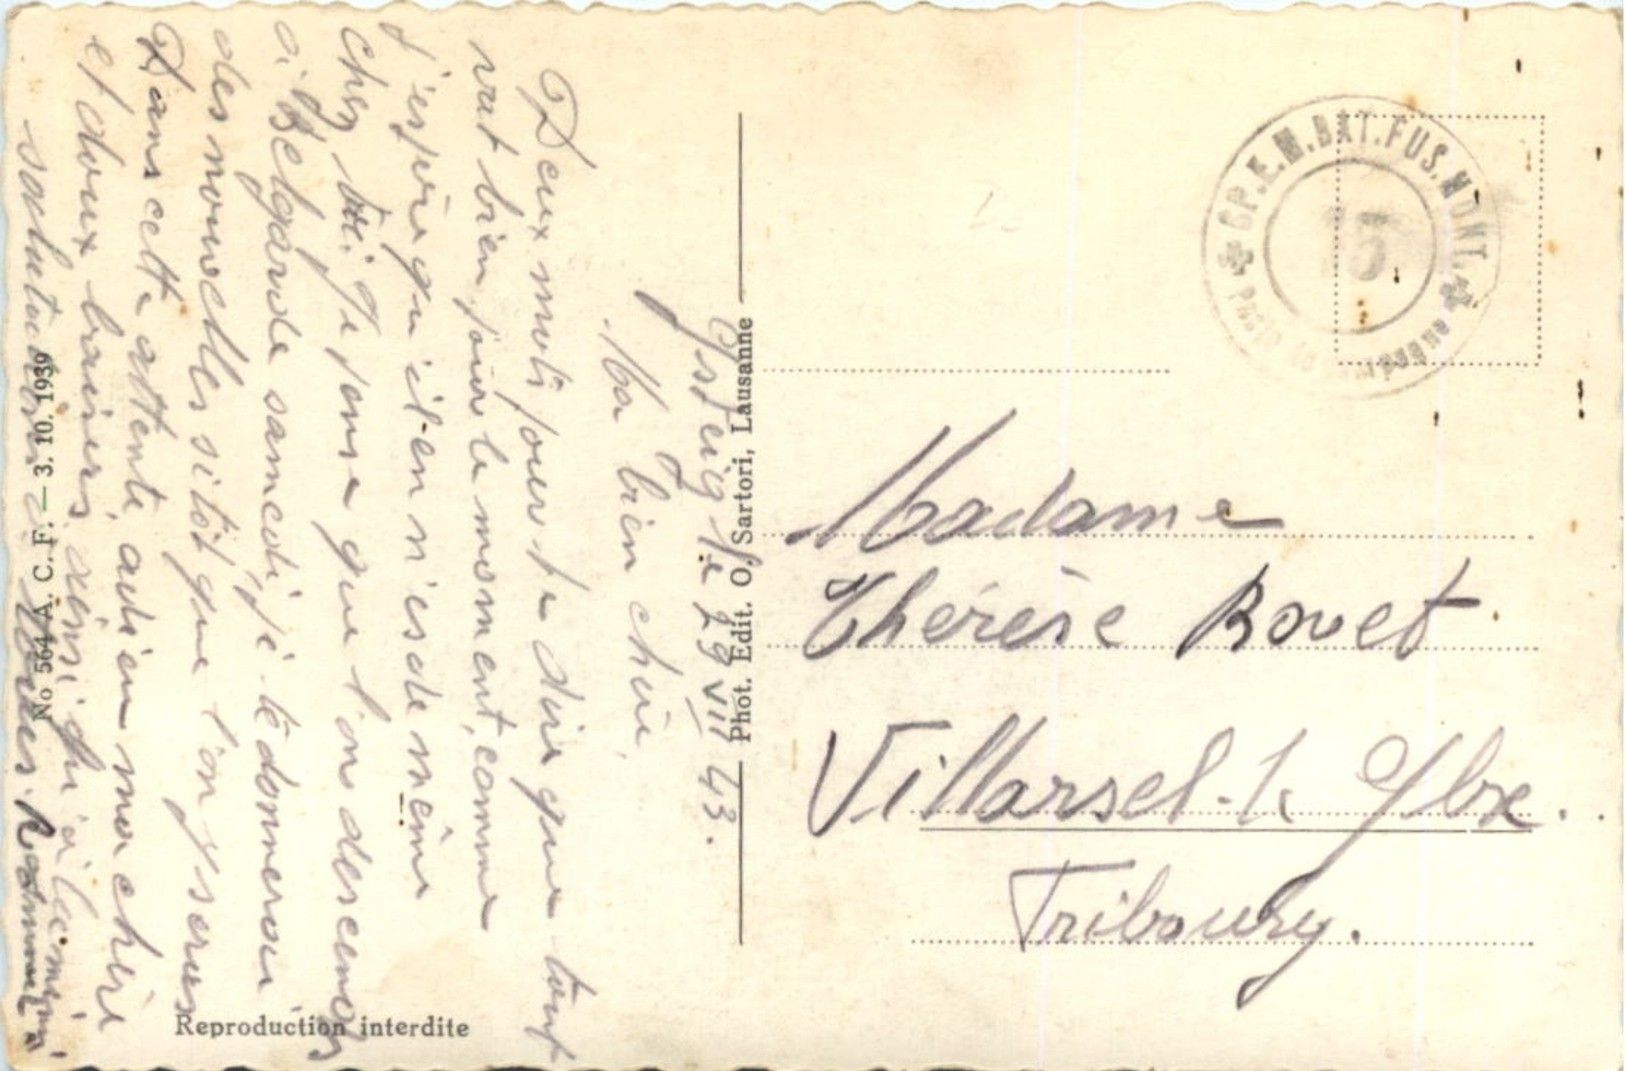 Gsteig le 29 VII 43.
Ma bien chère,
Deux mots pour te dire que tout
vat bien pour le moment, comme
j'espère qu'il en n'es de même
chez toi. Je pense que l'on descend
à Belgarde samedi, je te donnerai
des nouvelles sitôt que l'on y serons
Dans cette attente, adieu ma chère
et doux baisers, ainsi qu'à la
salutation à tous
Phot. Edit. O. Sartori, Lausanne
No 564 A. C. F. — 3. 10. 1939
Reproduction interdite
CP. E. M. BAT. FUS. MONT.
15
Poste de campagne
Madame
Thérèse Bovet
Villarsel. s. Gbx.
Fribourg.